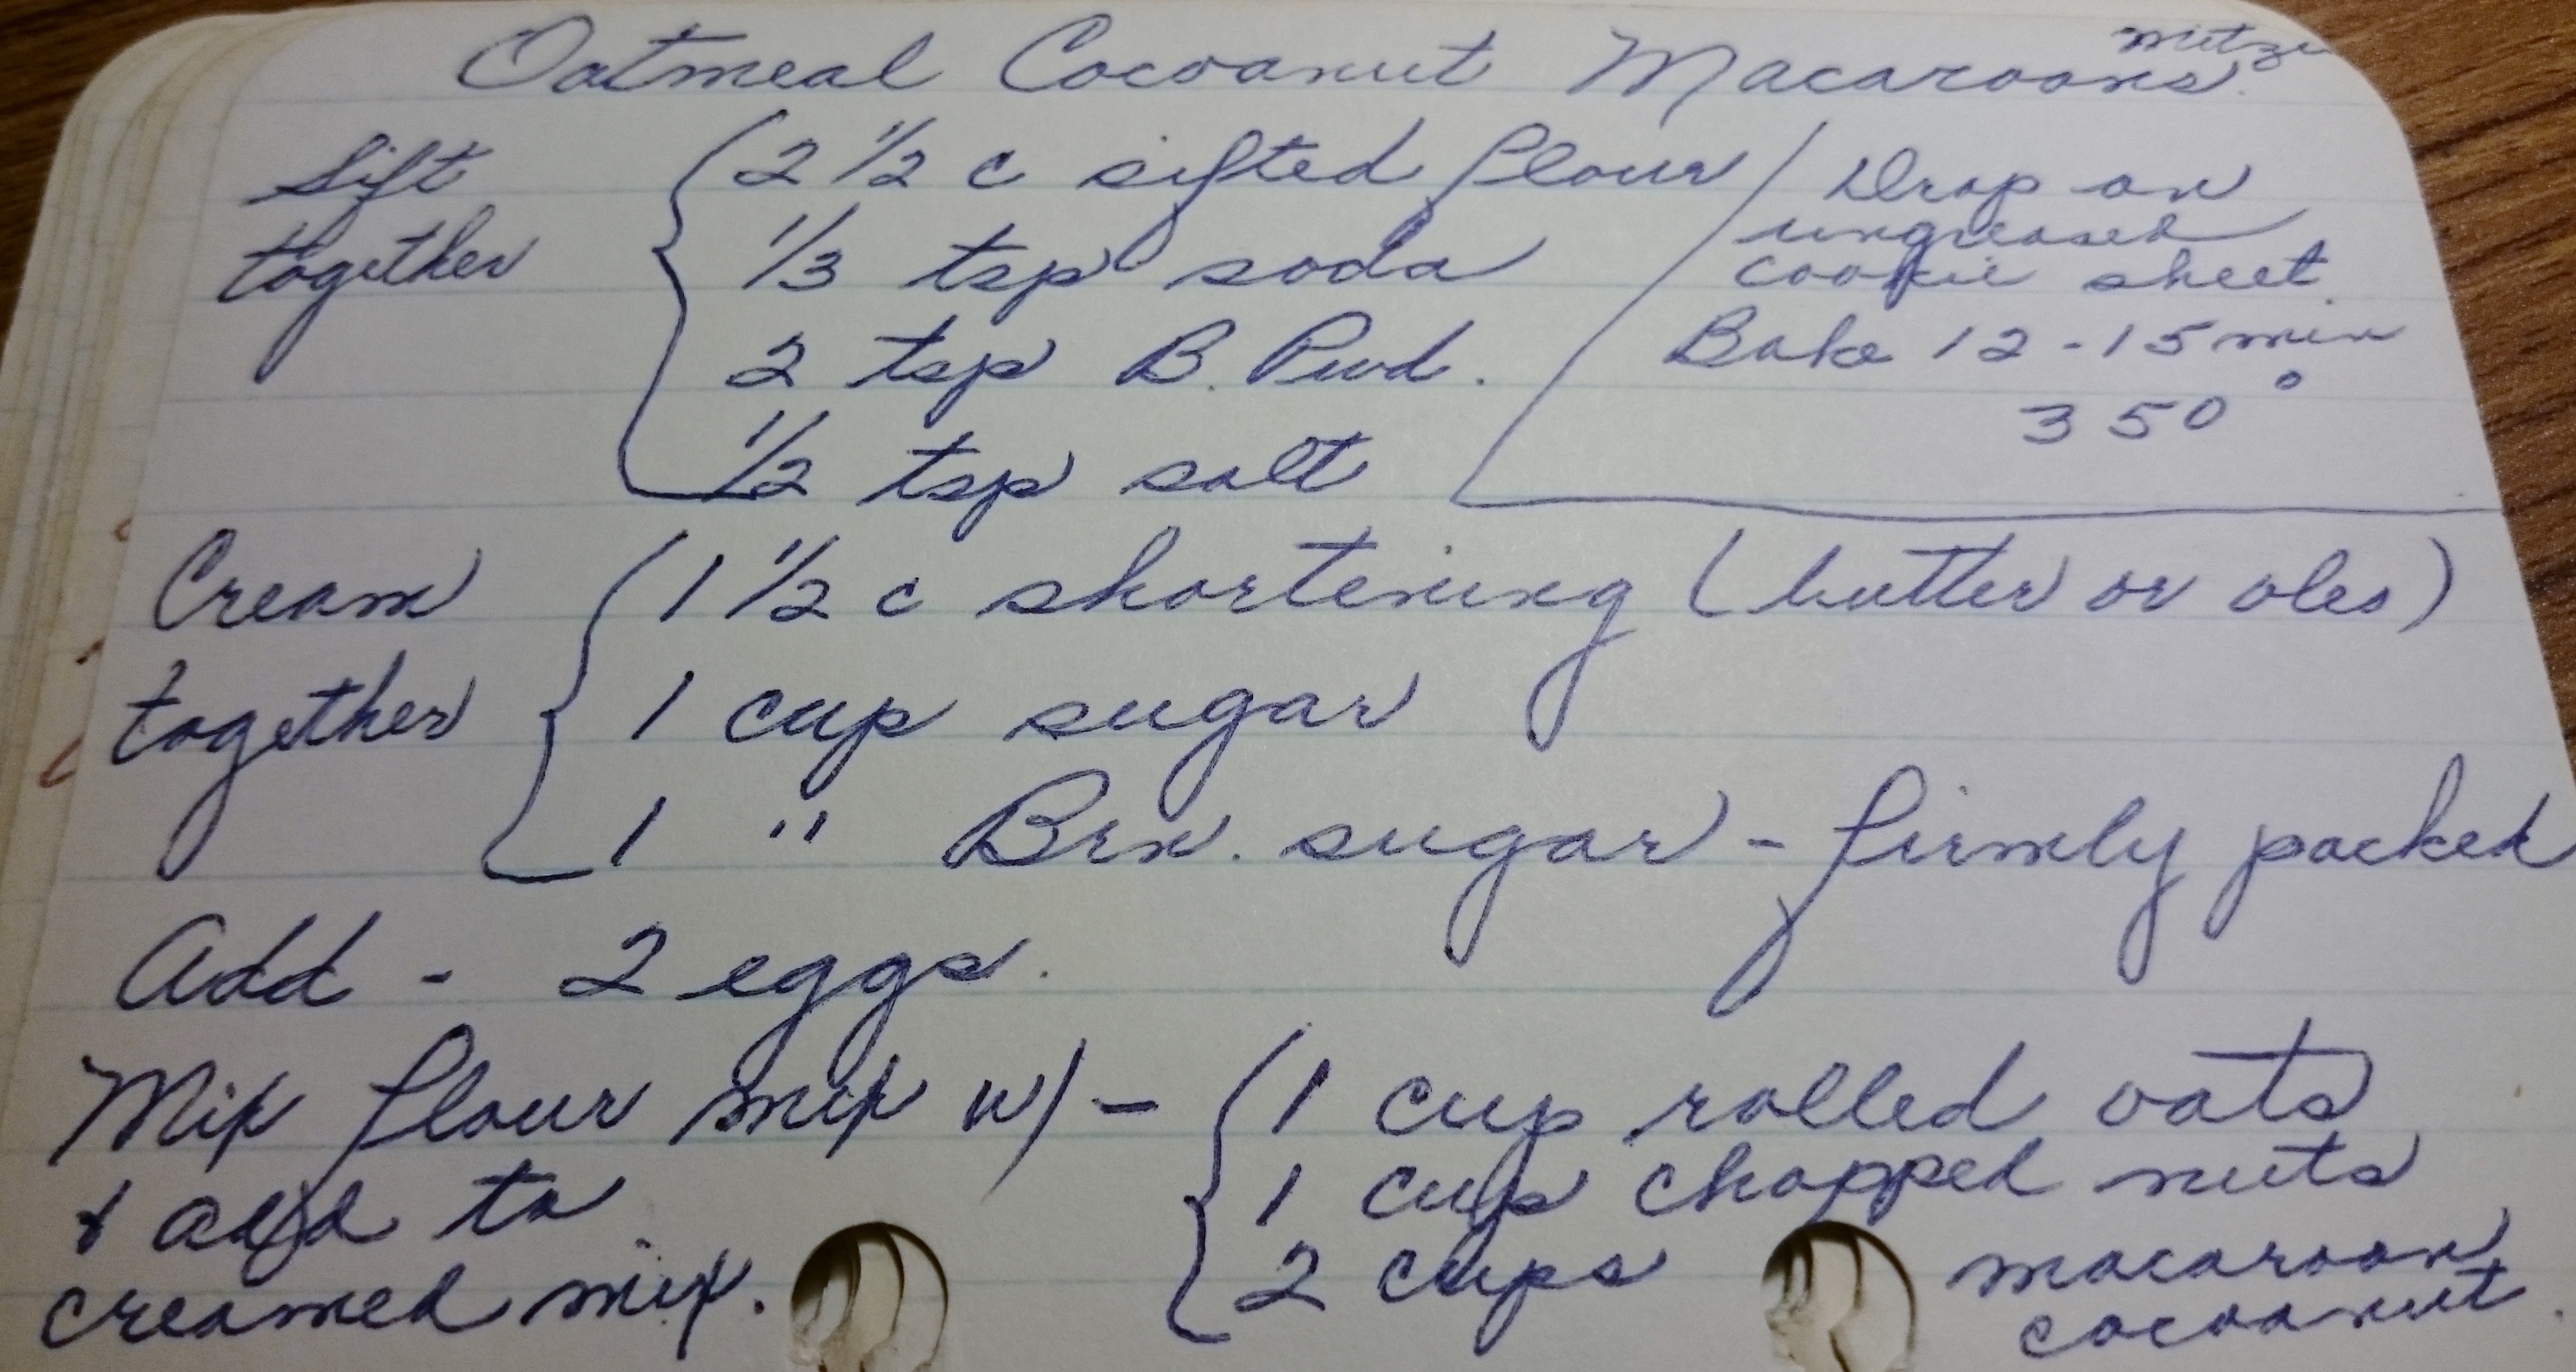 Mitzi
Oatmeal Cocoanut Macaroons.
Sift
together
2 1/2 c sifted flour
1/3 tsp soda
2 tsp B. Pwd.
1/2 tsp salt
Drop on
ungreased
cookie sheet.
Bake 12-15 min
350°
Cream
together
1 1/2 c shortening (butter or oleo)
1 cup sugar
1 " Brn. sugar - firmly packed
Add - 2 eggs.
Mix flour mix w/ -
& add to
creamed mix.
1 cup rolled oats
1 cup chopped nuts
2 cups macaroon
cocoanut.